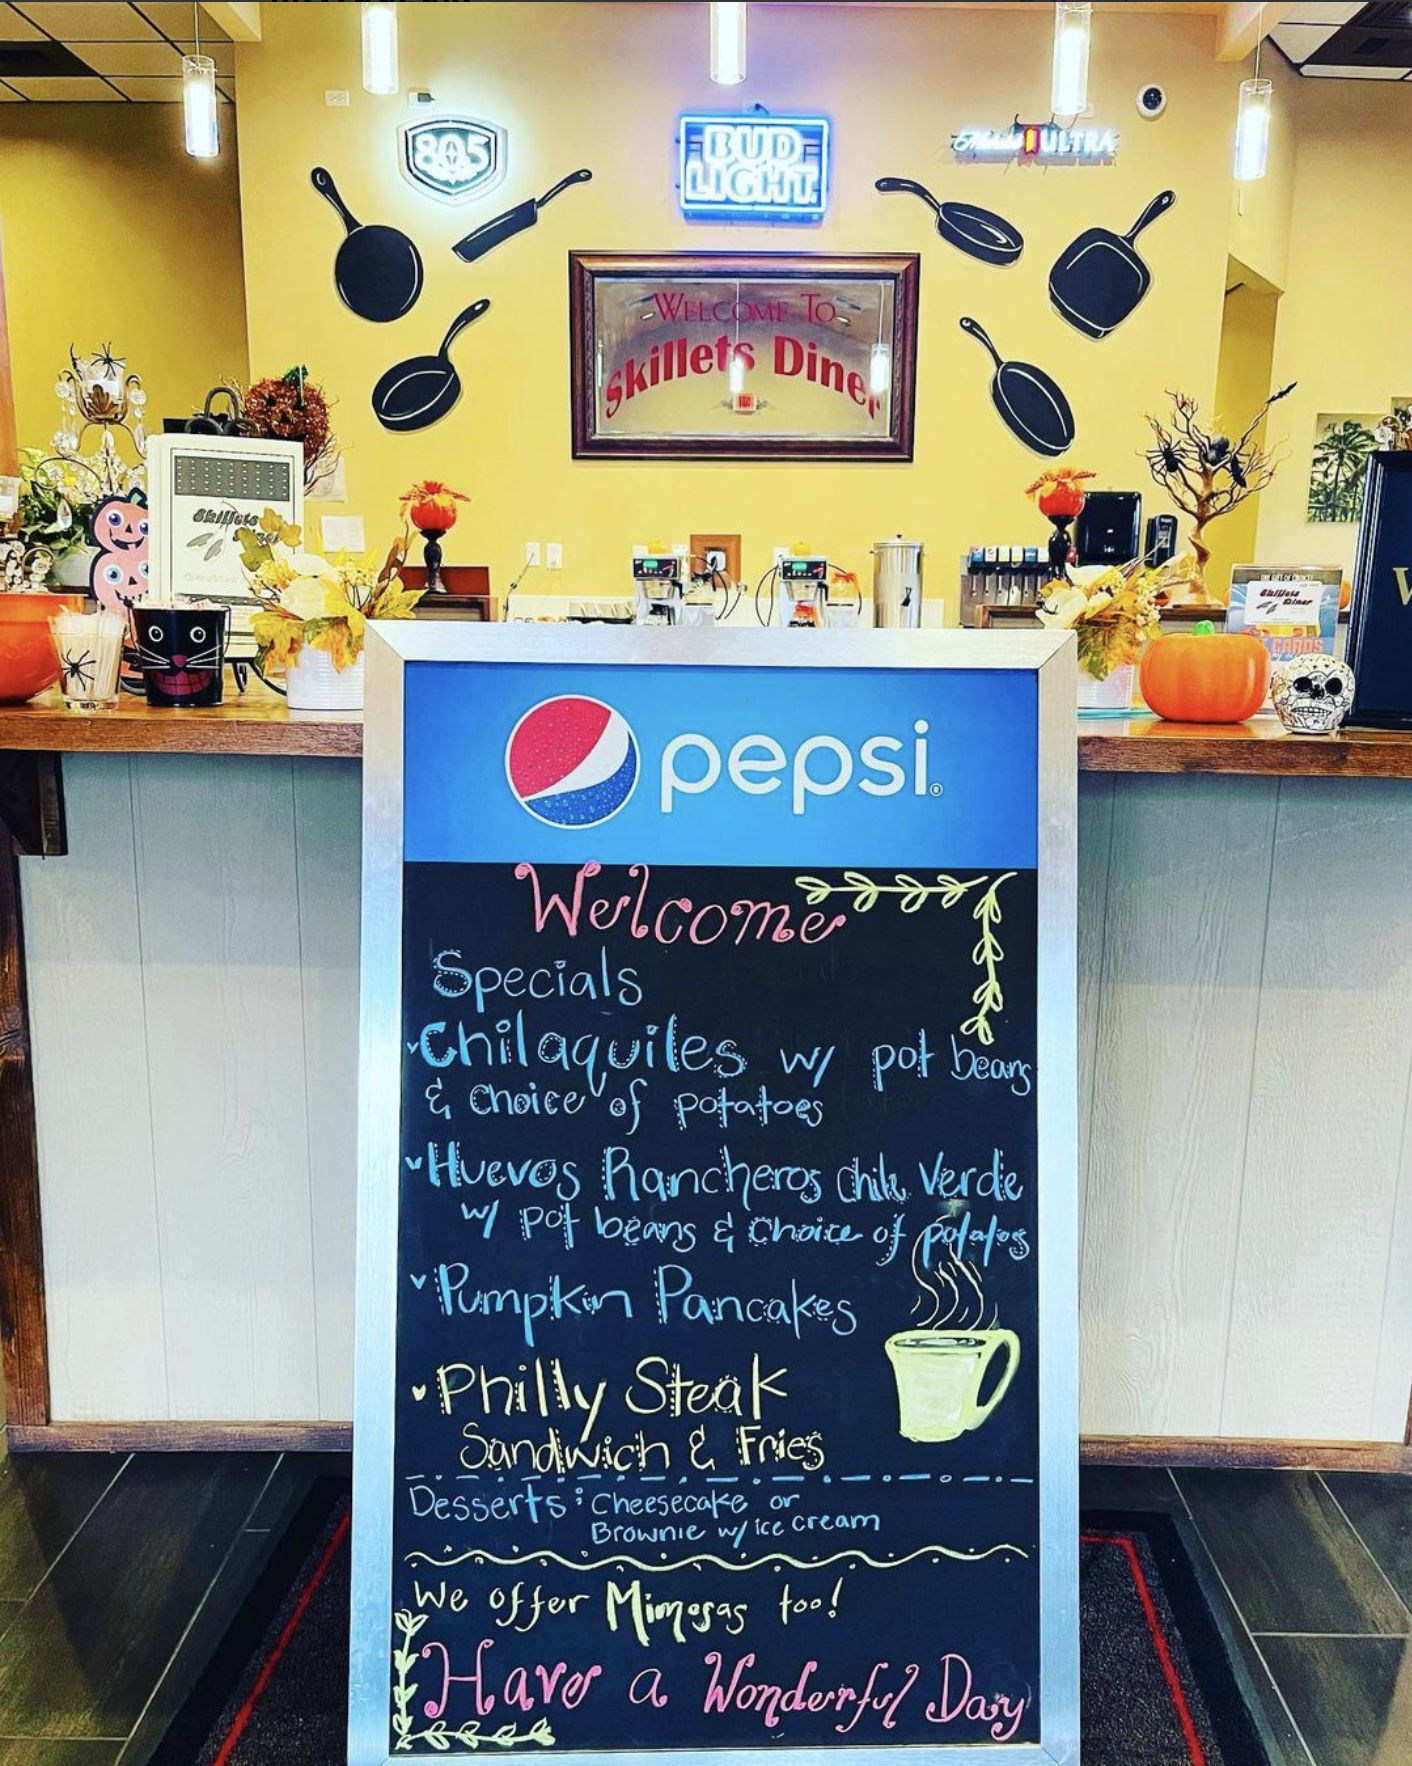 805
BUD
LIGHT
Michelob ULTRA
WELCOME TO
Skillets Diner
Skillets
Diner
THE GIFT OF CHOICE!
Skillets
Diner
CARDS
W
pepsi®
Welcome
Specials
Chilaquiles w/ pot beans
& Choice of potatoes
Huevos Rancheros chile Verde
w/ pot beans & Choice of potatos
Pumpkin Pancakes
Philly Steak
Sandwich & Fries
Desserts: Cheesecake or
Brownie w/ ice cream
We offer Mimosas too!
Have a Wonderful Day